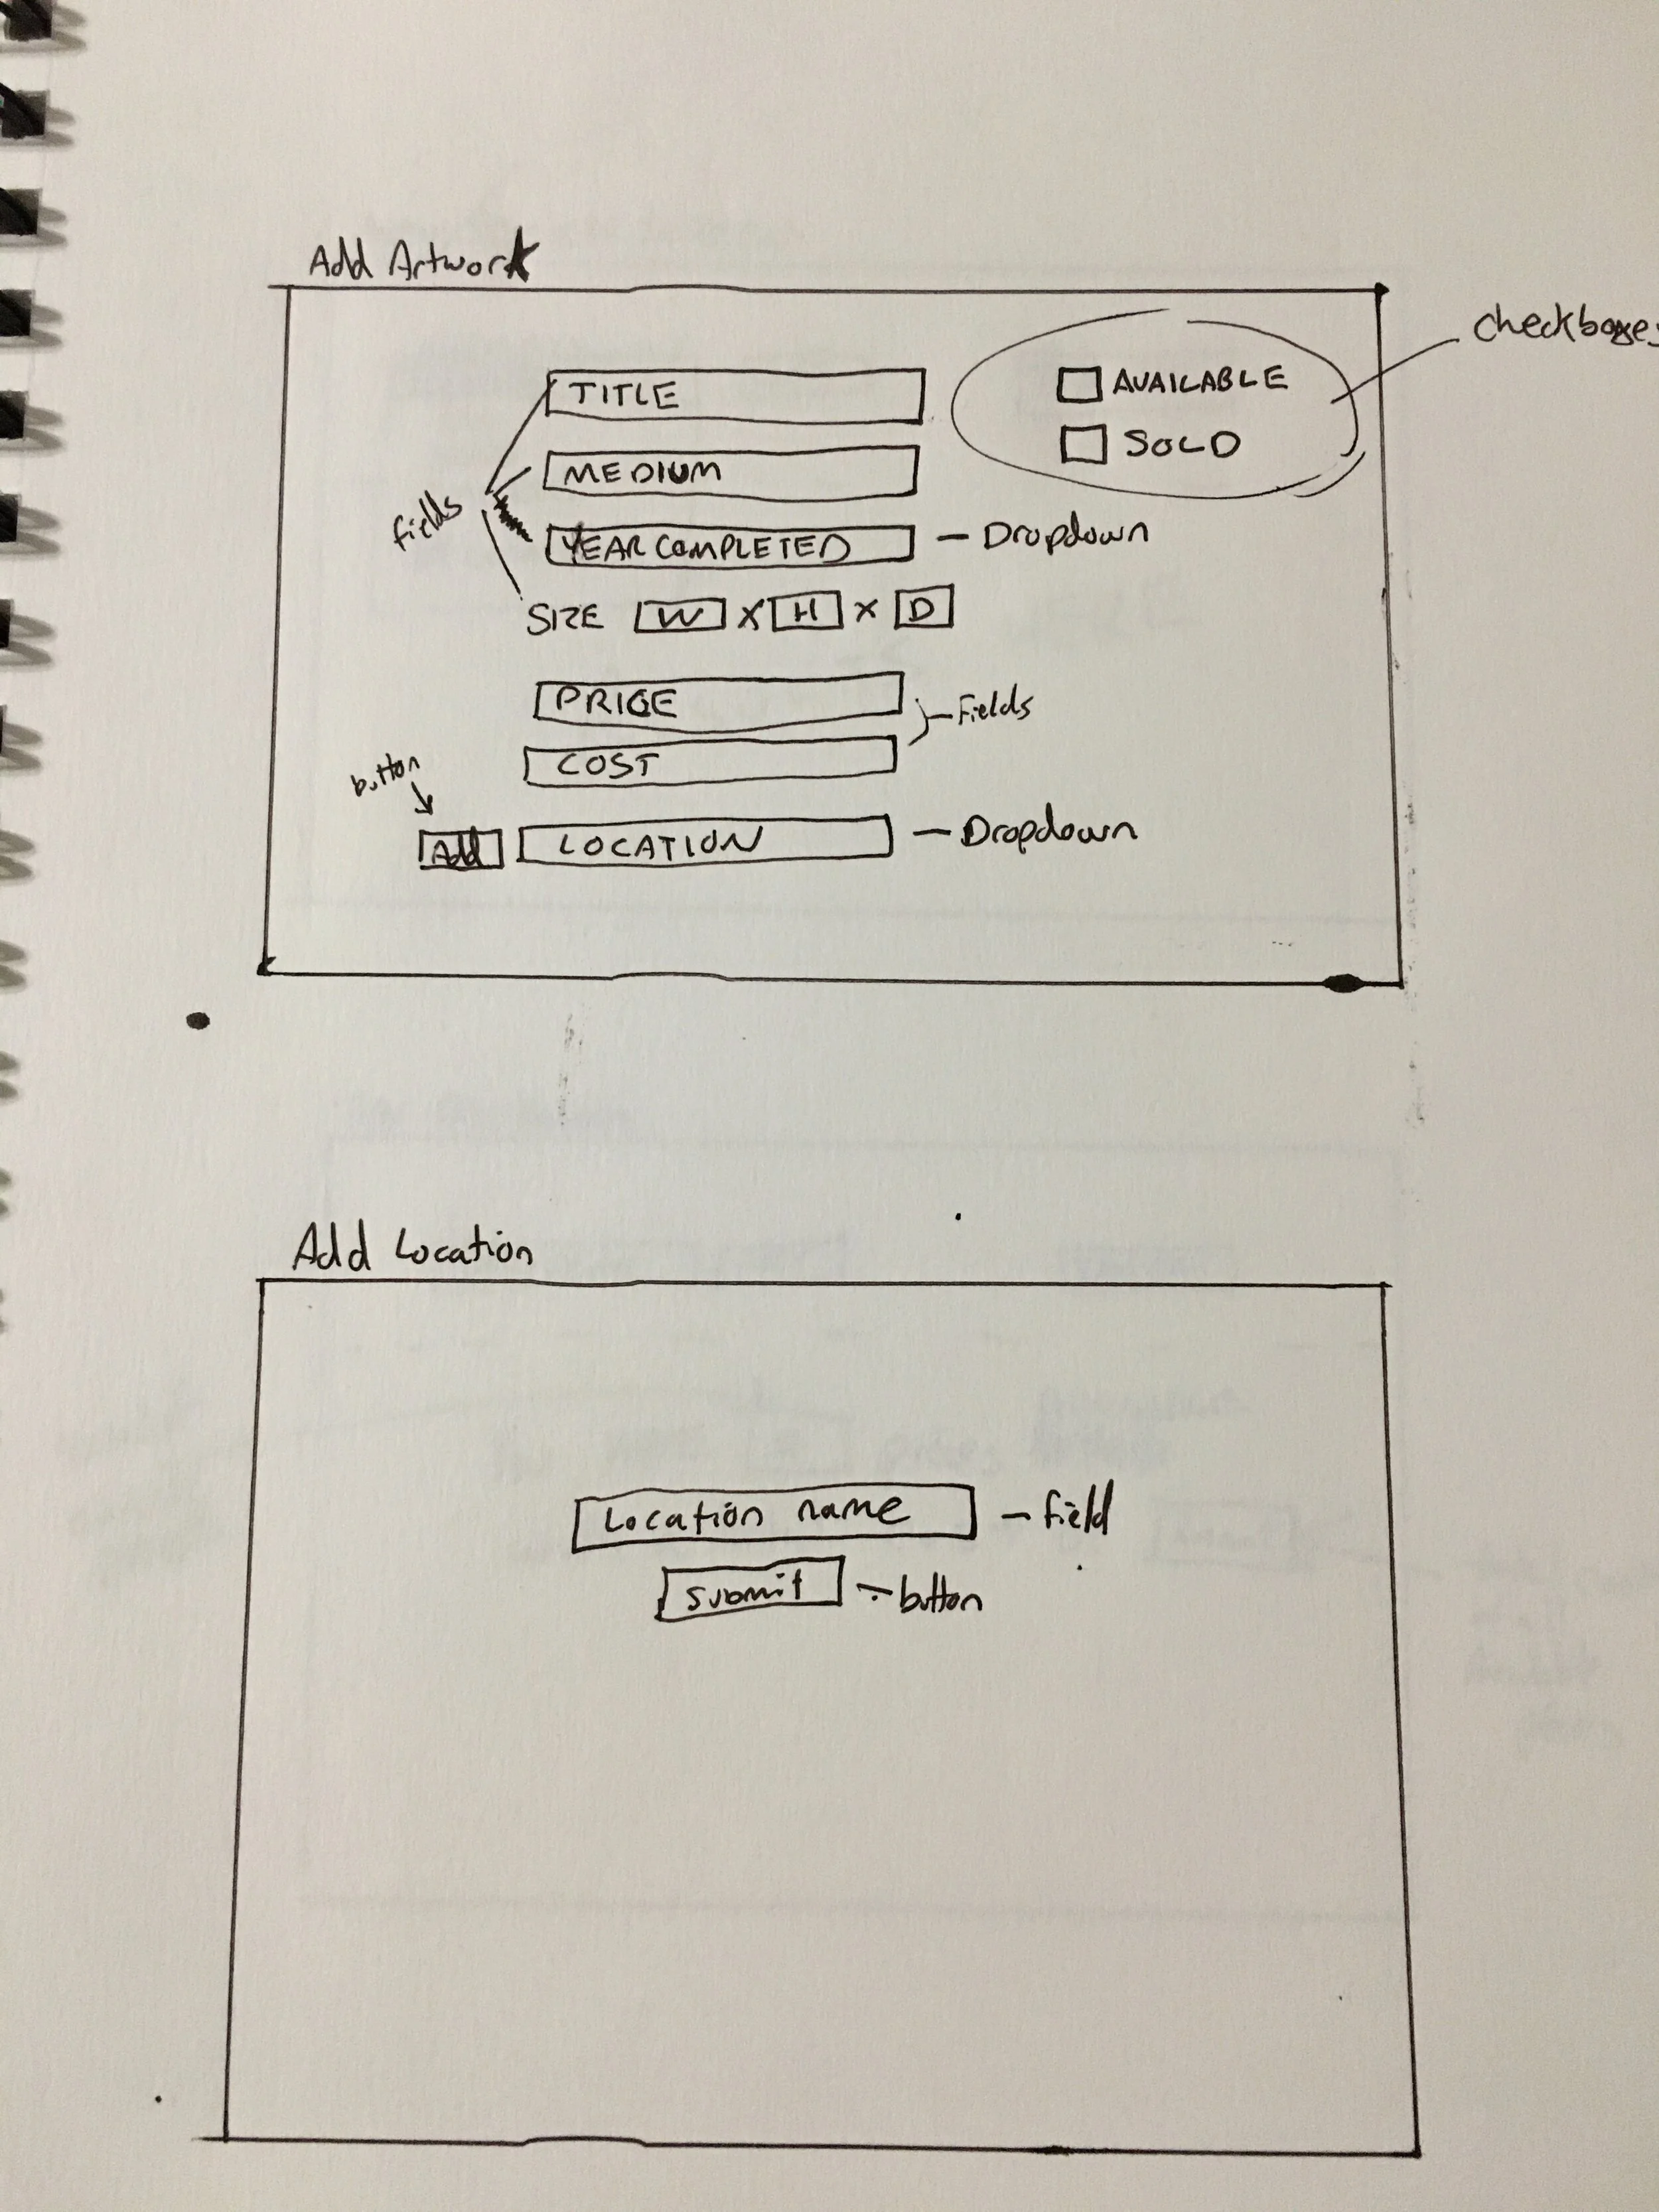 Add Artwork
checkboxes
TITLE
AVAILABLE
SOLD
MEDIUM
fields
YEAR COMPLETED – Dropdown
SIZE W x H x D
PRICE
Fields
COST
button
Add LOCATION – Dropdown
Add Location
Location name – field
submit – button